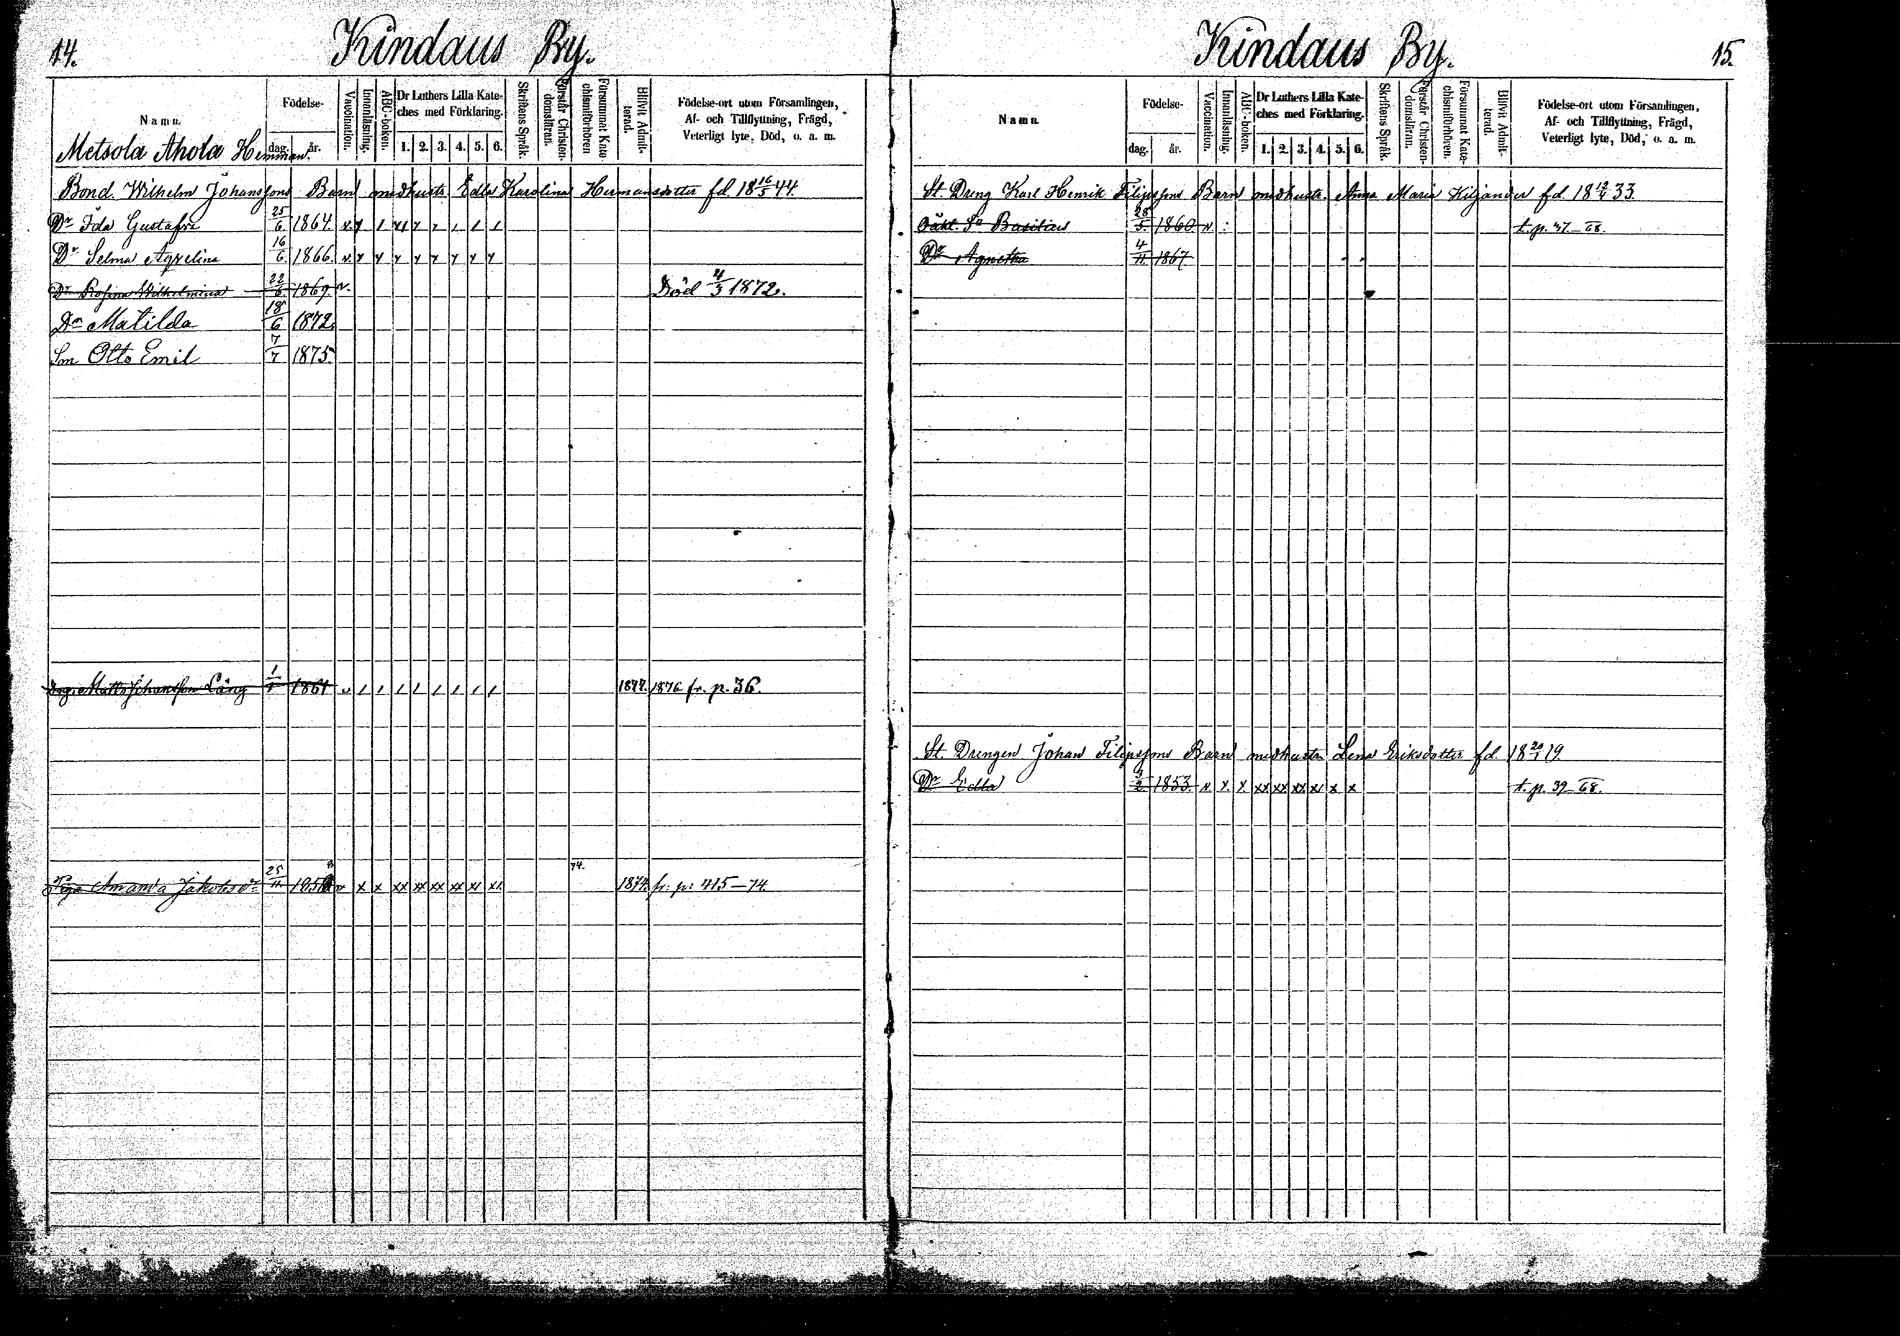 14.
Kindaus By.
Namn.
Födelse-
dag.
år.
Vaccination.
Innanläsning.
ABC-boken.
Dr Luthers Lilla Kate-
ches med Förklaring.
1. 2. 3. 4. 5. 6.
Skriftens Språk.
Förstår Christen-
domsläran.
Försummat Kate-
chismiförhören
Blifvit Admit-
terad.
Födelse-ort utom Församlingen,
Af- och Tillflyttning, Frägd,
Veterligt lyte, Död, o. a. m.
Metsola Ahola Hemman.
Bond. Wilhelm Johanssons Barn med hustr. Edla Karolina Hermansdotter fd 18 16/5 44.
Dr Ida Gustafva 25/6 1864. v. y 1 y1 y y 1 1 1
Dr Selma Aqvelina 16/6 1866. v. y y y y y y y y
Dr Rosina Wilhelmina 22/6 1869. v. Död 4/3 1872.
Dr Matilda 18/6 1872
Son Otto Emil 7/7 1875
Matts Johansson Lång 1861 v 1 1 1 1 1 1 1 1 1877. 1876 fr. p. 36.
74.
Pig. Amanda Jakobsdr 25/11 185 v x x xx xx xx xx x1 x1 1874. fr. p: 415–74.
15.
Kindaus By.
Namn.
Födelse-
dag.
år.
Vaccination.
Innanläsning.
ABC-boken.
Dr Luthers Lilla Kate-
ches med Förklaring.
1. 2. 3. 4. 5. 6.
Skriftens Språk.
Förstår Christen-
domsläran.
Försummat Kate-
chismiförhören.
Blifvit Admit-
terad.
Födelse-ort utom Församlingen,
Af- och Tillflyttning, Frägd,
Veterligt lyte, Död, o. a. m.
St. Dreng Karl Henrik Filipssons Barn med hustr. Anna Maria Kiljander fd. 18 12/4 33.
Oäkt. Sn Basilius 28/5 1860 v : t. p. 37–68.
Dr Agnetha 4/11 1867
St. Drengen Johan Filipssons Barn med hustr. Lena Eriksdotter fd. 18 20/1 19.
Dr Edla 9/2 1853. v x x xx xx xx x1 x x t. p. 39–68.